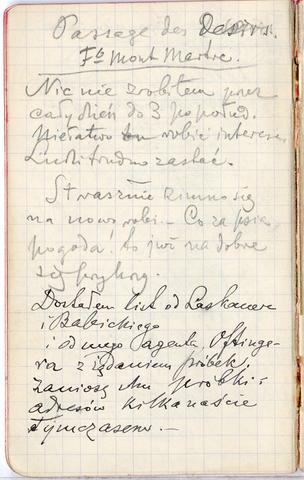 Passage des Desirs.
Fb Mont Martre.
Nic nie zrobiłem przez
cały dzień do 3 popołud.
Niełatwo tu robić interesa
Ludzi trudno zastać.
Strasznie zimno się
na nowo robi – Co za psia
pogoda! to już na dobre
się przykrzy.
Dostałem list od Laskauera
i Babickiego
i od mego agenta Oftinge-
ra z żądaniem próbek.
Zaniosę Mu próbki i
adresów kilkanaście
Tymczasem –